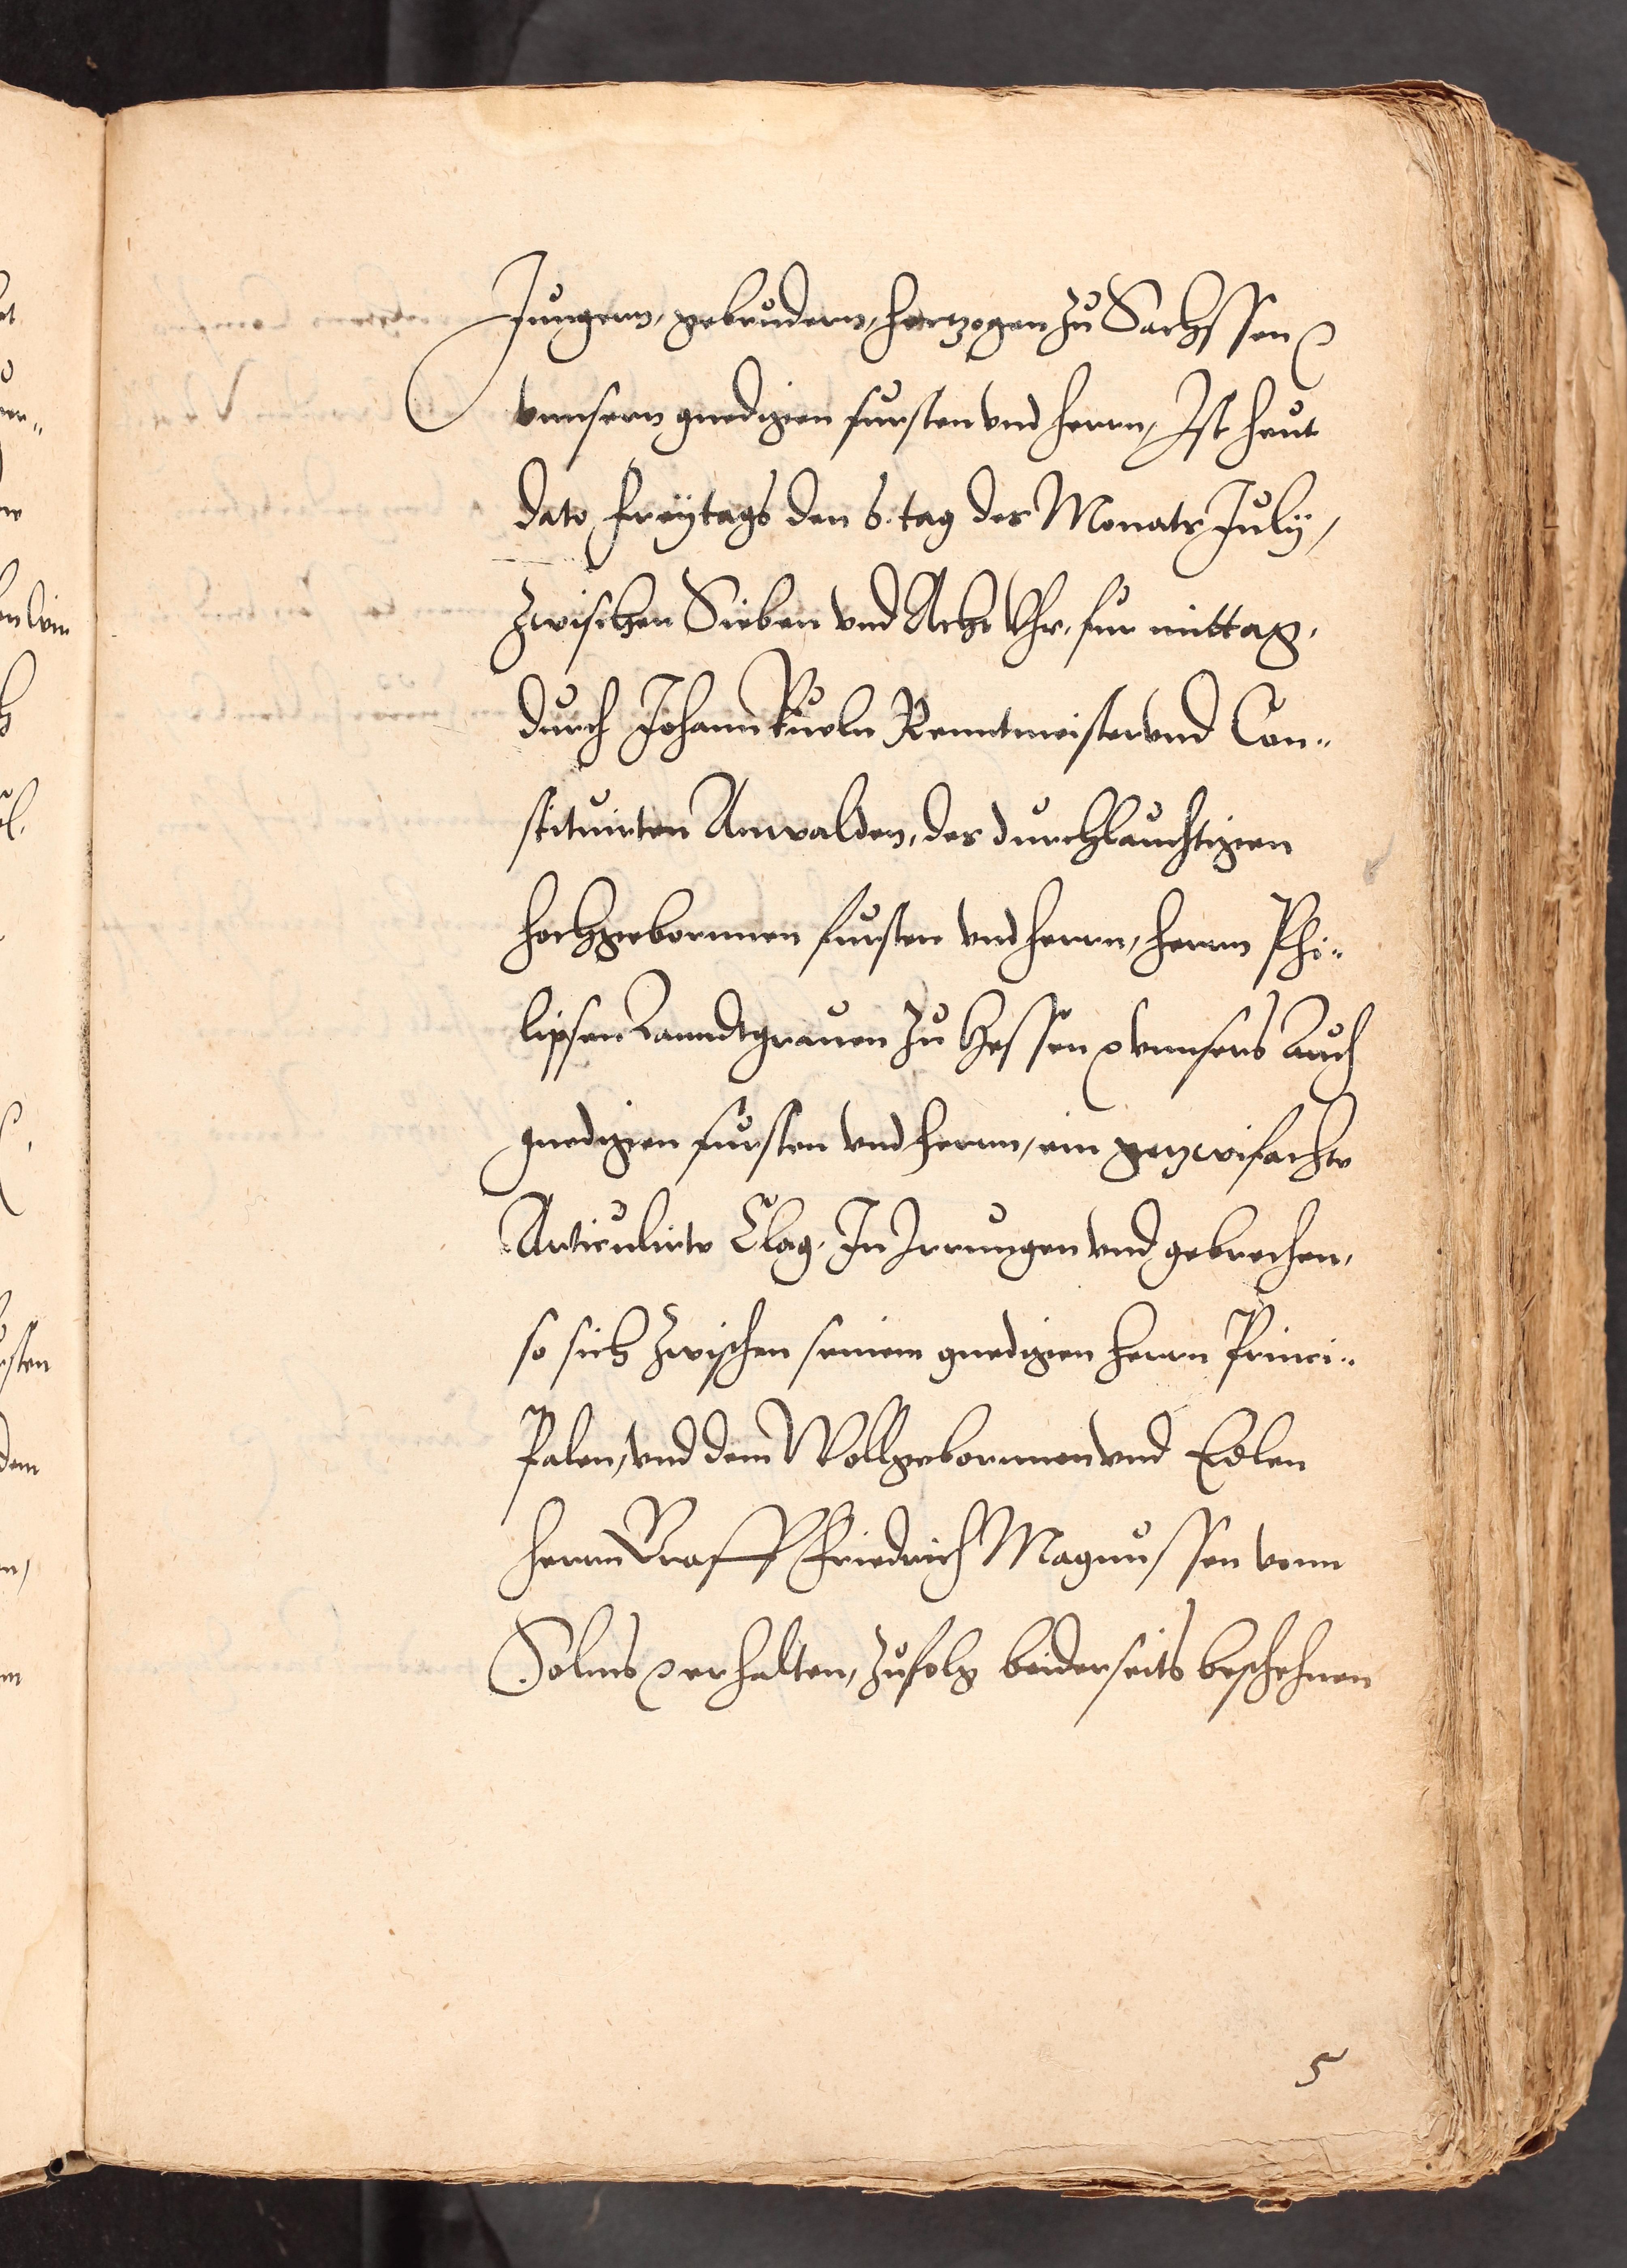 Jungern, gebrudern, Hertzogen zu Sachssen
vnnsern gnedigen fursten vnd herrn, Ist heut
dato freytags den 6. tag des Monats July,
Zwischen Sieben vnd Acht Vhr, fur mittag,
durch Johann Rueln Renntmeister vnd Con„
stituirten Anwalden, des durchlauchtigen
hochgebornnen fursten vnd herrn, herrn Phi„
lipsen Lanndtgrauen zu Hessen vnnsers auch
gnedigen fursten vnd herrn, ein gezwifachte
Articulirte Clag, In Irrungen vnd gebrechen,
so sich zwischen seinem gnedigen herrn Princi„
palen, vnd dem Wollgebornnen vnd Edlen
herrn Graff Friedrich Magnussen vonn
Solms erhalten, zufolg beiderseits beschehnen
5